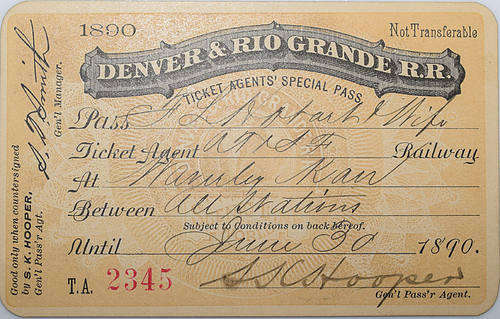 1890
Not Transferable
DENVER & RIO GRANDE R.R.
TICKET AGENTS' SPECIAL PASS
Pass F L Hobart & Wife
Ticket Agent AT&SF Railway
At Kan
Between All Stations
Subject to Conditions on back hereof.
Until June 30 1890.
T.A. 2345 S K Hooper
Gen'l Pass'r Agt.
Good only when countersigned
by S. K. HOOPER,
Gen'l Pass'r Agt.
Smith
Gen'l Manager.